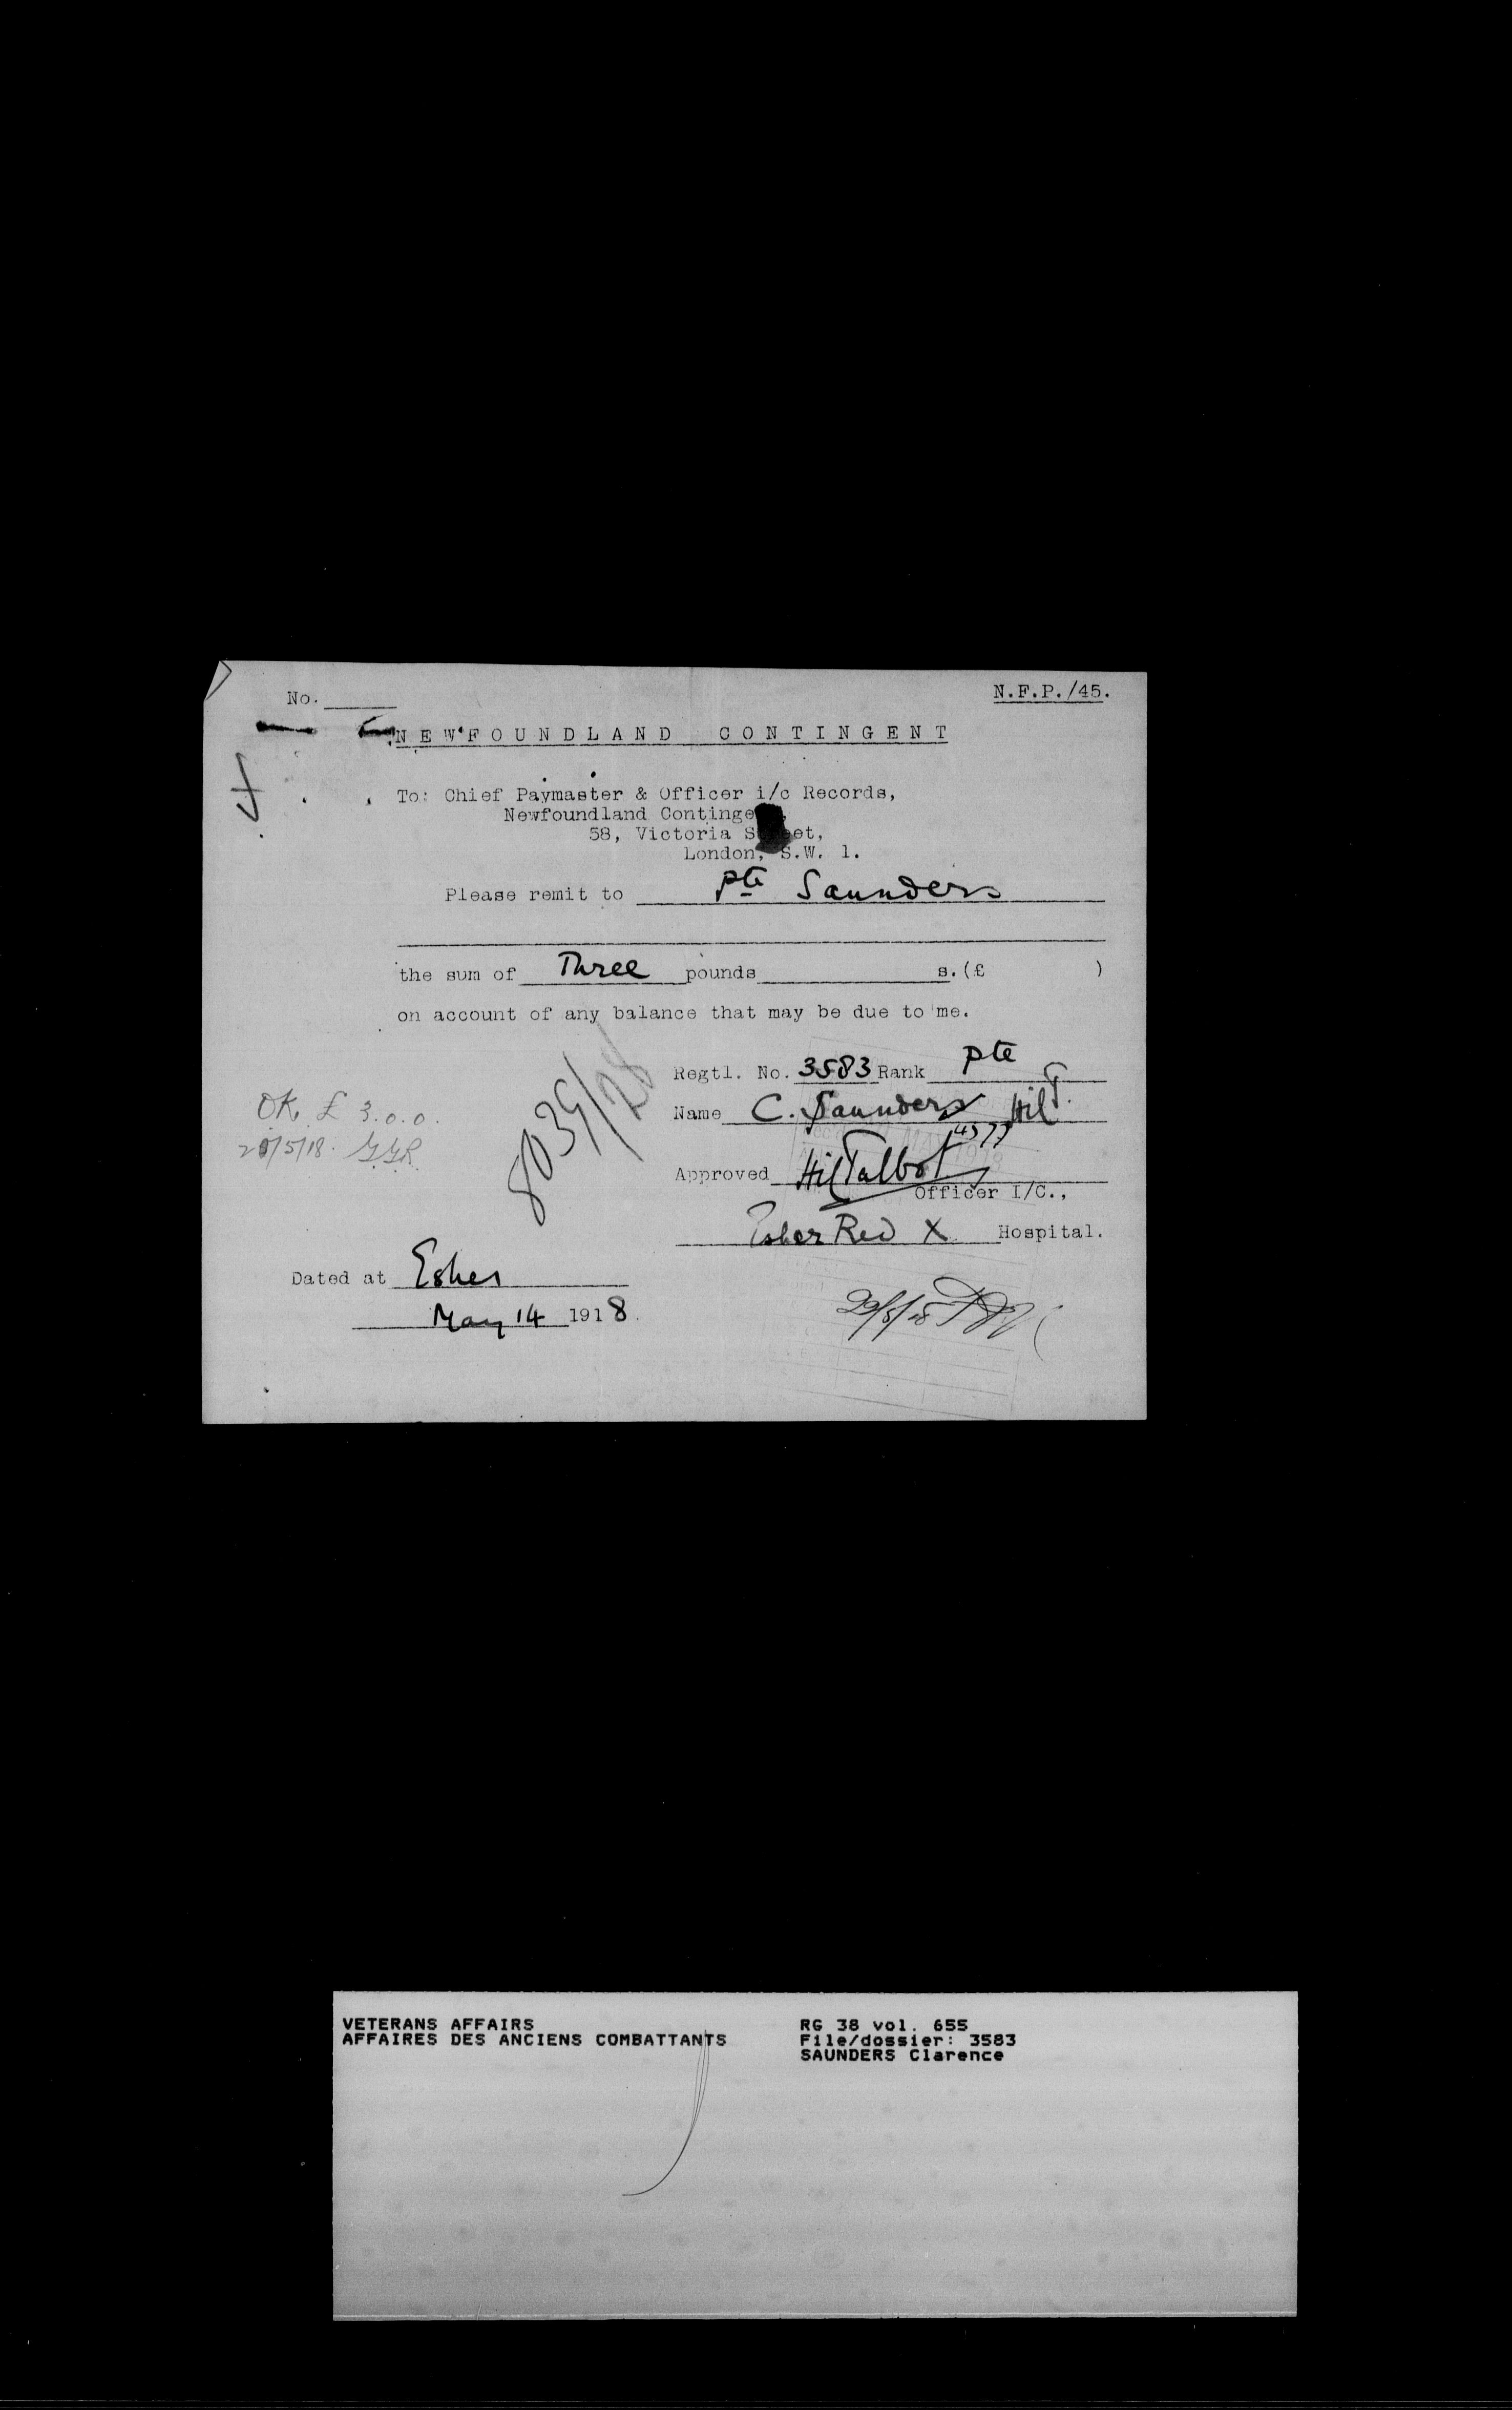 No.
N.F.P./45.
NEWFOUNDLAND CONTINGENT
To: Chief Paymaster & Officer i/c Records,
Newfoundland Continge
58, Victoria S eet,
London, S.W. 1.
Please remit to Pte Saunders
the sum of Three pounds s.(£ )
on account of any balance that may be due to me.
Regtl. No. 3583 Rank Pte
Name C. Saunders
OK. £ 3.0.0.
8039/28
Approved Hil Talbot
Officer I/C.,
Esher Red X Hospital.
Dated at Esher
May 14 1918.
VETERANS AFFAIRS
AFFAIRES DES ANCIENS COMBATTANTS
RG 38 vol. 655
File/dossier: 3583
SAUNDERS Clarence